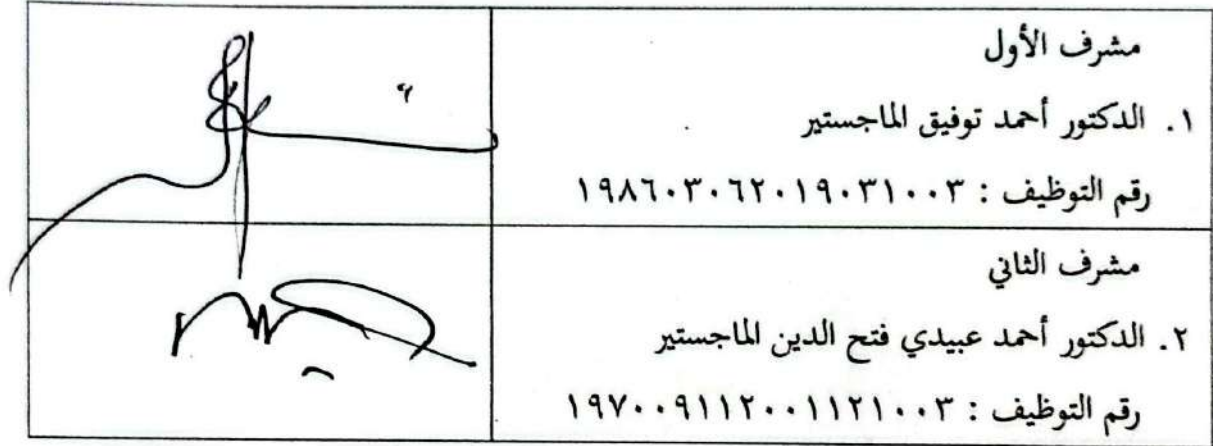 مشرف الأول
١. الدكتور أحمد توفيق الماجستير
رقم التوظيف : ١٩٨٦٠٣٠٦٢٠١٩٠٣١٠٠٣
مشرف الثاني
٢. الدكتور أحمد عبيدي فتح الدين الماجستير
رقم التوظيف : ١٩٧٠٠٩١١٢٠٠١١٢١٠٠٣